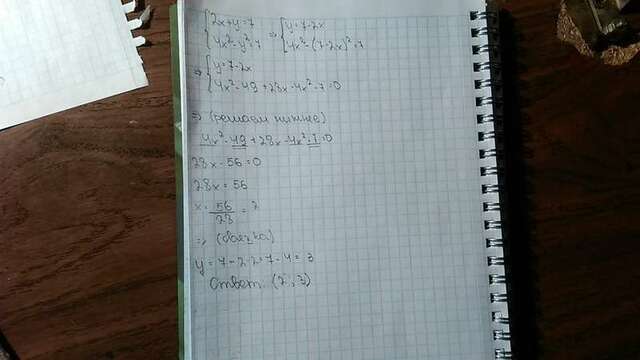 {2x+y=7 => {y=7-2x
{4x²-y²=7 {4x²-(7-2x)²=7
=> {y=7-2x
{4x²-49+28x-4x²-7=0
=> (решаем ниже)
4x²-49+28x-4x²-7=0
28x-56=0
28x=56
x=56/28=2
=>
y=7-2·2=7-4=3
Ответ (2;3)